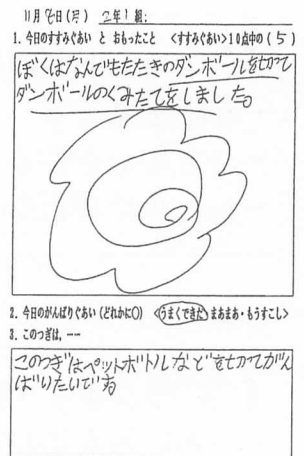 11月7日(月) 2年1組:
1. 今日のすすみぐあい と おもったこと <すすみぐあい>10点中の(5)
ぼくはなんでもたたきのダンボールを
ダンボールのくみたてをしました。
2. 今日のがんばりぐあい(どれかに○) <うまくできた・まあまあ・もうすこし>
3. このつぎは、--
このつぎはペットボトルなどを切ってがん
ばりたいです